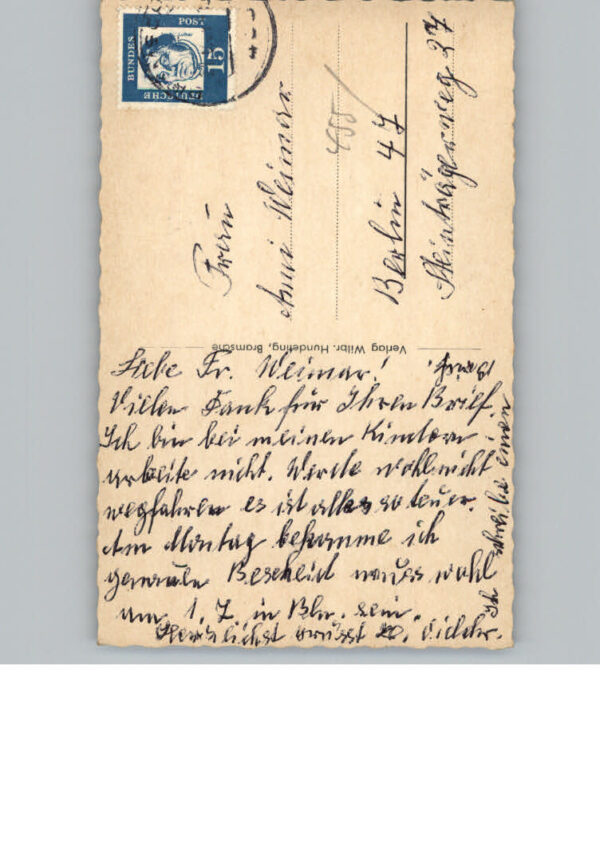 DEUTSCHE
BUNDES
POST
15
455
Frau
Anni Weimar
Berlin 47
Verlag Wilbr. Hundeling, Bramsche
Liebe Fr. Weimar!
Vielen Dank für Ihren Brief.
Ich bin bei meinen Kindern
arbeite nicht. Werde wohl nicht
wegfahren es ist alles so teuer.
Am Montag bekomme ich
genauen Bescheid muss wohl
am 1. 7. in Bln. sein.
Herzlichst grüsst
Ich schreibe einen